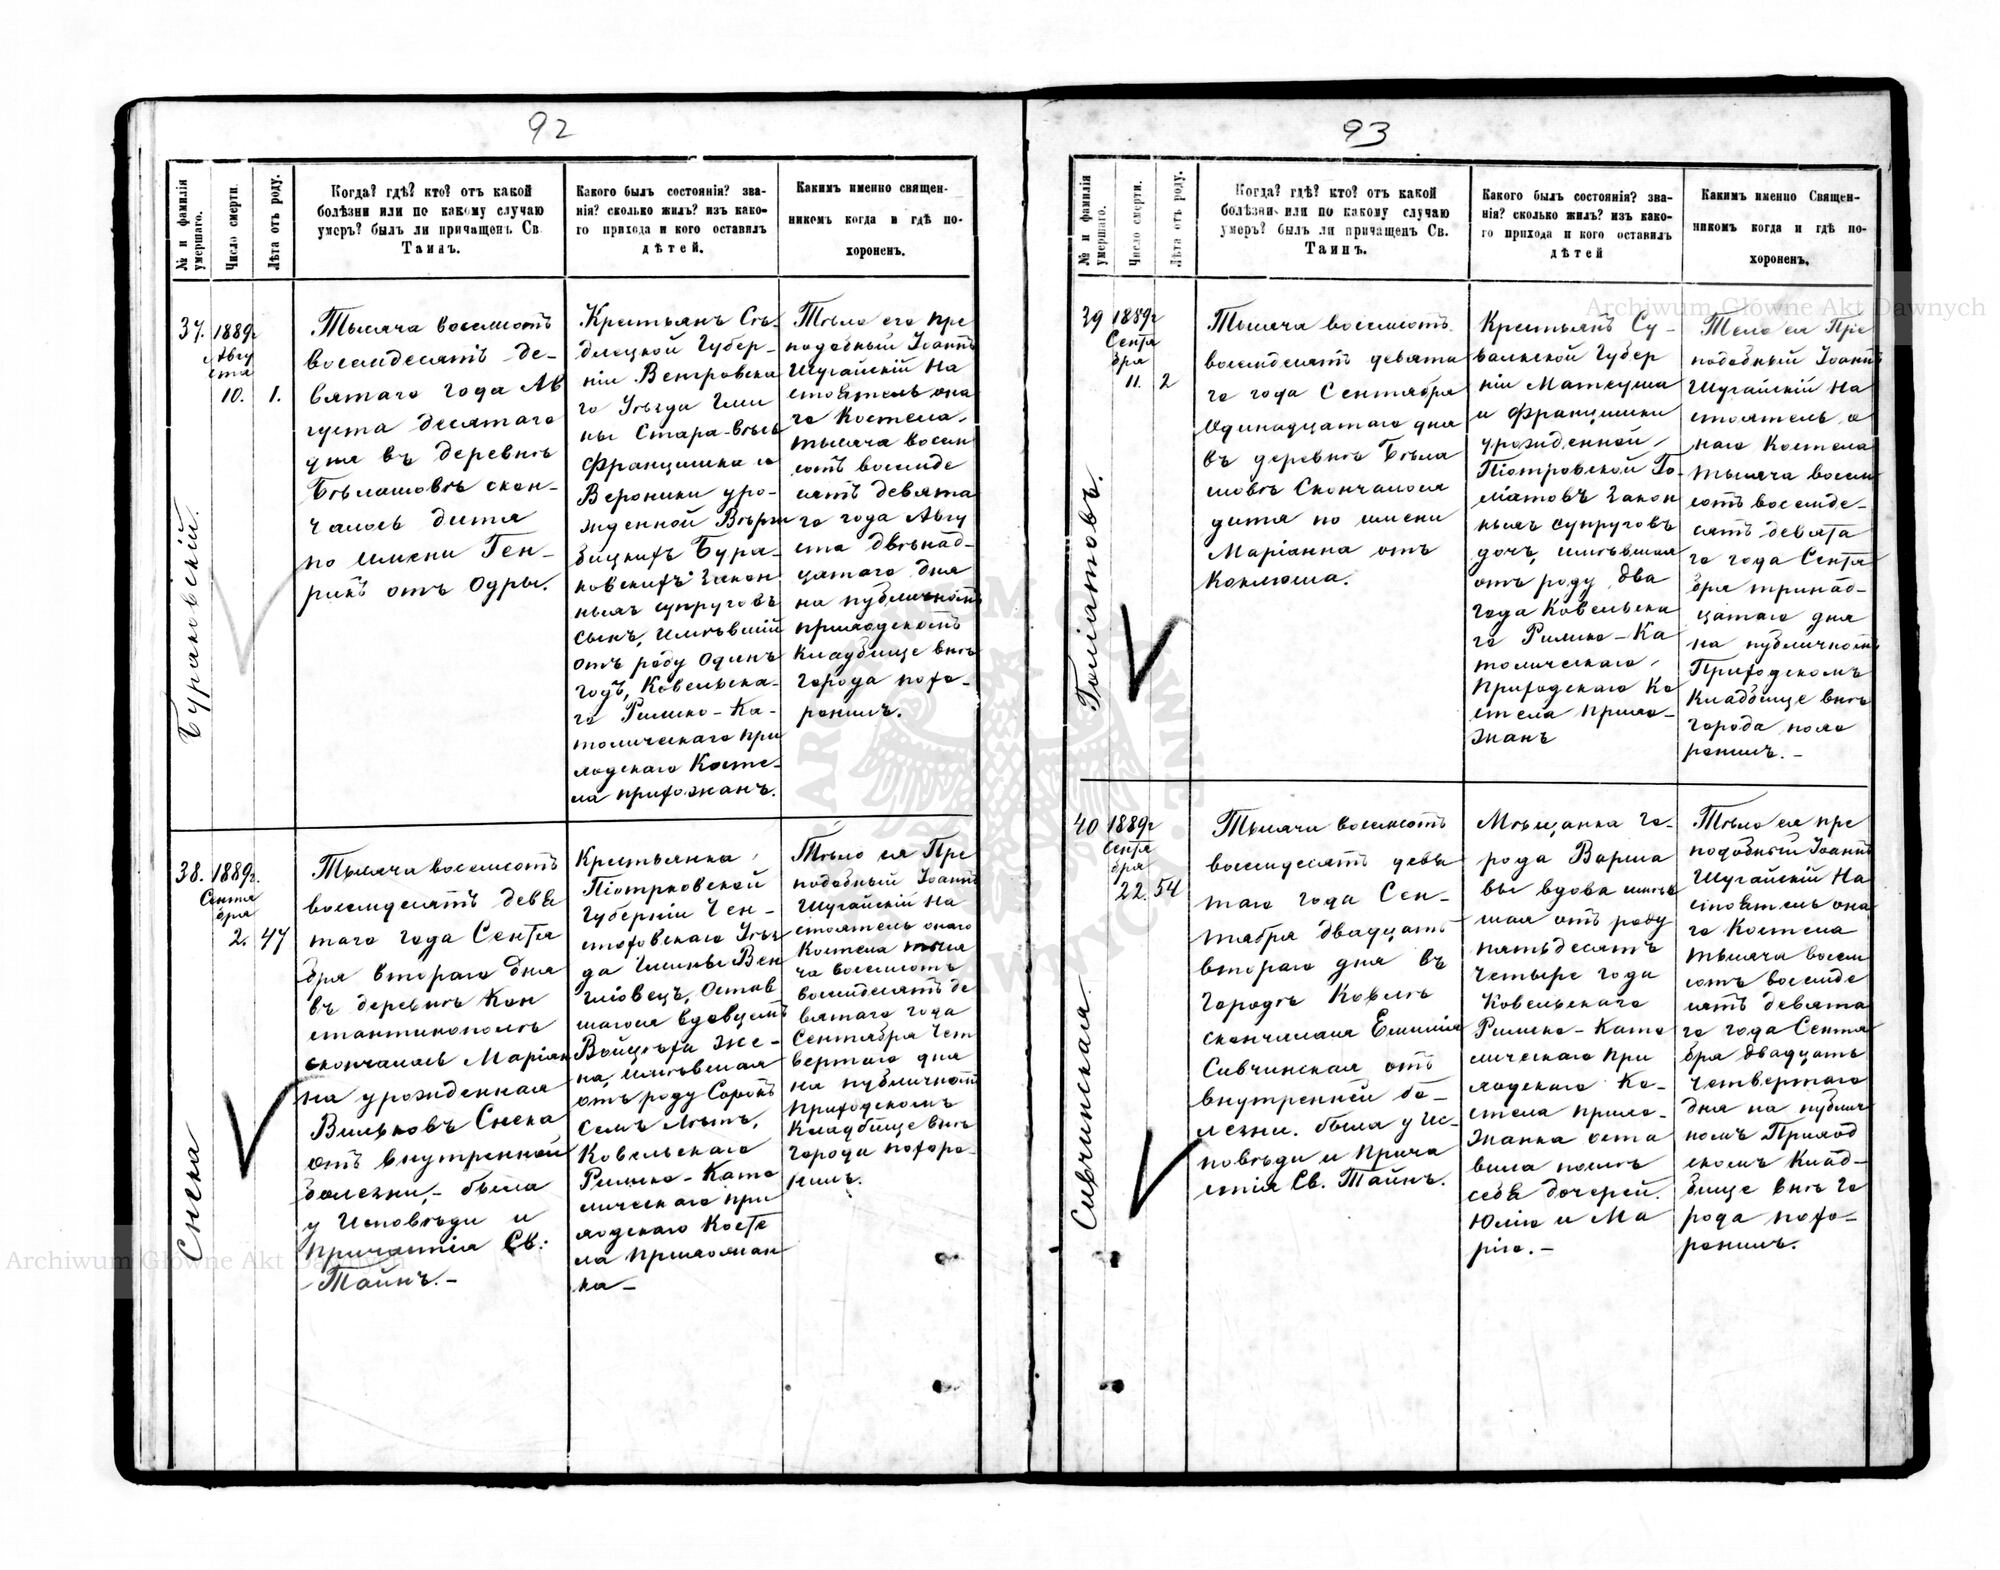 92
№ и фамилія умершаго.
Число смерти.
Лѣта отъ роду.
Когда? гдѣ? кто? отъ какой
болѣзни или по какому случаю
умеръ? былъ ли причащенъ Св.
Таинъ.
Какого былъ состоянія? зва-
нія? сколько жилъ? изъ како-
го прихода и кого оставилъ
дѣтей.
Каким именно священ-
никомъ когда и гдѣ по-
хороненъ.
37. 1889г
Авгу
ста
10. 1.
Бураковскій.
Тысяча восемсотъ
восемдесятъ де-
вятаго года Ав
густа десятаго
дня въ деревнѣ
Бѣлашовѣ скон-
чалось дитя
по имени Ген-
рикъ отъ Одры.
Крестьянъ Сѣд-
лецкой Губер-
ніи Венгровска
го Уѣзда Гми
ны Стара-вѣсь
Францишка и
Вероники уро-
жденной Вѣрж
бицкихъ Бура-
ковскихъ закон
ныхъ супруговъ
сынъ, имѣвшій
отъ роду одинъ
годъ, Ковельска-
го Римско-Ка-
толическаго при
ходскаго Косте-
ла прихожанъ.
Тѣло его пре
подобный Іоаннъ
Шугайскій На
стоятель она
го Костела,
тысяча восем
сотъ восемде
сятъ девята
го года Авгу
ста двѣнад-
цатаго дня
на публичномъ
приходскомъ
Кладбище внѣ
города похо-
ронилъ.
38. 1889г.
Сентя
бря
2. 47
Снека
Тысяча восемсотъ
восемдесятъ девя
таго года Сентя
бря втораго дня
въ деревнѣ Кон
стантинополѣ
скончалась Маріан
на урожденная
Вильковъ Снека
отъ внутренной
болезни,- была
у Исповѣди и
Причастія Св:
Тайнъ.-
Крестьянка,
Піотрковской
Губерніи Чен-
стоховскаго Уѣз
да Гмины Вен
гловецъ, Остав
шагося вдовцемъ
Войцѣха же-
на, имѣвшая
отъ роду Сорокъ
Семъ Лѣтъ,
Ковельскаго
Римско-Като
лическаго при
ходскаго Косте
ла прихожан
ка-
Тѣло ея Пре
подобный Іоаннъ
Шугайскій На
стоятель онаго
Костела тыся
ча восемсотъ
восемдесятъ де
вятаго года
Сентября Чет
вертаго дня
на публичномъ
Приходскомъ
Кладбище внѣ
города похоро-
нилъ.
93
№ и фамилія умершаго.
Число смерти.
Лѣта отъ роду.
Когда? гдѣ? кто? отъ какой
болѣзни или по какому случаю
умеръ? былъ ли причащенъ Св.
Таинъ.
Какого былъ состоянія? зва-
нія? сколько жилъ? изъ како-
го прихода и кого оставилъ
дѣтей
Какимъ именно Священ-
никомъ когда и гдѣ по-
хороненъ.
39 1889г
Сентя
бря
11. 2
Голіатовъ.
Тысяча восемсотъ
восемдесятъ девята
го года Сентября
Одинадцатаго дня
въ деревнѣ Бѣла
шовѣ Скончалося
дитя по имени
Маріанна отъ
Коклюша.
Крестьянъ Су-
валкской Губер
ніи Матеуша
и Францишки
урожденной,
Піотровской Го-
ліатовъ закон
ныхъ супруговъ
дочъ, имѣвшая
отъ роду два
года Ковельска
го Римско-Ка
толическаго,
Приходскаго Ко
стела прихо-
жанъ
Тело ея Пре
подобный Іоаннъ
Шугайскій На
стоятель о
наго Костела
тысяча восем
сотъ восемде-
сятъ девята
го года Сентя
бря тринад-
цатаго дня
на публичномъ
Приходскомъ
Кладбище внѣ
города похо
ронилъ.-
40 1889г
Сентя
бря
22. 54
Сивчинская.
Тысяча восемсотъ
восемдесятъ девя
таго года Сен-
тября двадцать
втораго дня въ
городѣ Ковлѣ
скончалася Емилія
Сивчинская отъ
внутренней бо-
лезни. была у Ис-
повѣди и Прича
стія Св. Тайнъ.
Мѣщанка го-
рода Варша
вы вдова имѣв
шая отъ роду
пятьдесятъ
четыре года
Ковельскаго
Римско-Като
лическаго при
ходскаго Ко-
стела прихо-
жанка оста
вила послѣ
себя дочерей.
Юлію и Ма
рію.-
Тѣло ея пре
подобный Іоаннъ
Шугайскій На
стоятель она
го Костела
тысяча восем
сотъ восемде
сятъ девята
го года Сентя
бря двадцать
Четвертаго
дня на публич
номъ Приход
скомъ Клад-
бище внѣ го
рода похо-
ронилъ.
Archiwum Główne Akt Dawnych
Archiwum Główne Akt Dawnych